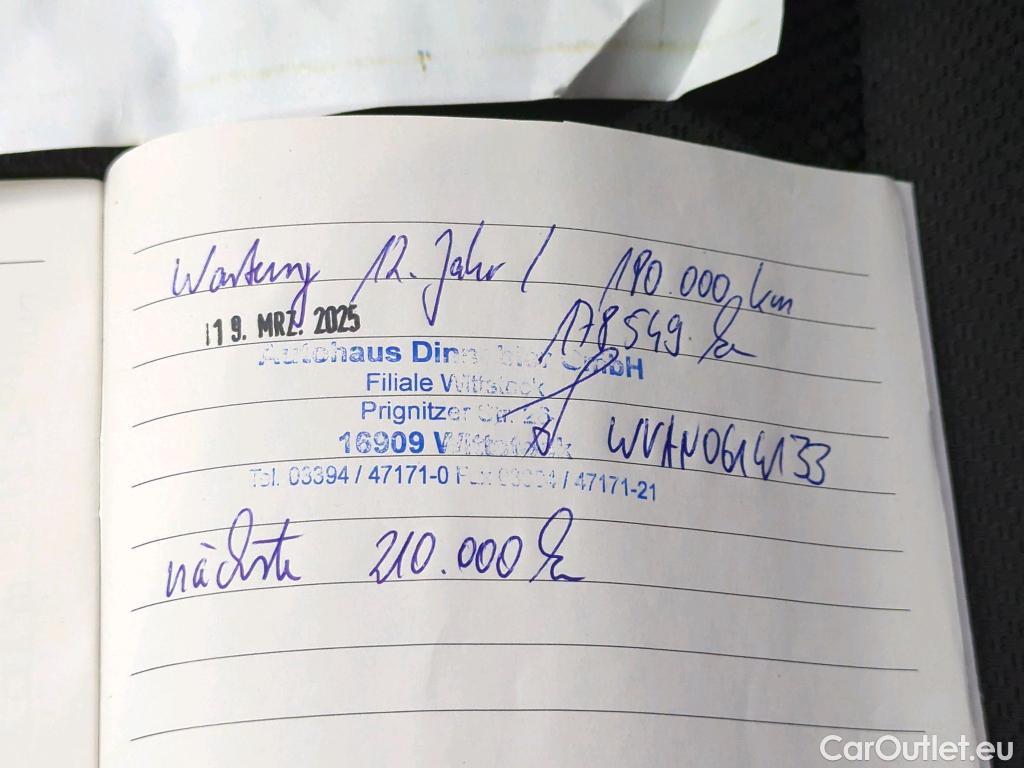 Wartung 12. Jahr / 190.000 km
19. MRZ. 2025
178549 km
Autohaus GmbH
Filiale Wittstock
Prignitzer Str. 23
16909 Wittstock
Tel. 03394 / 47171-0 Fax 03394 / 47171-21
nächste 210.000 km
CarOutlet.eu